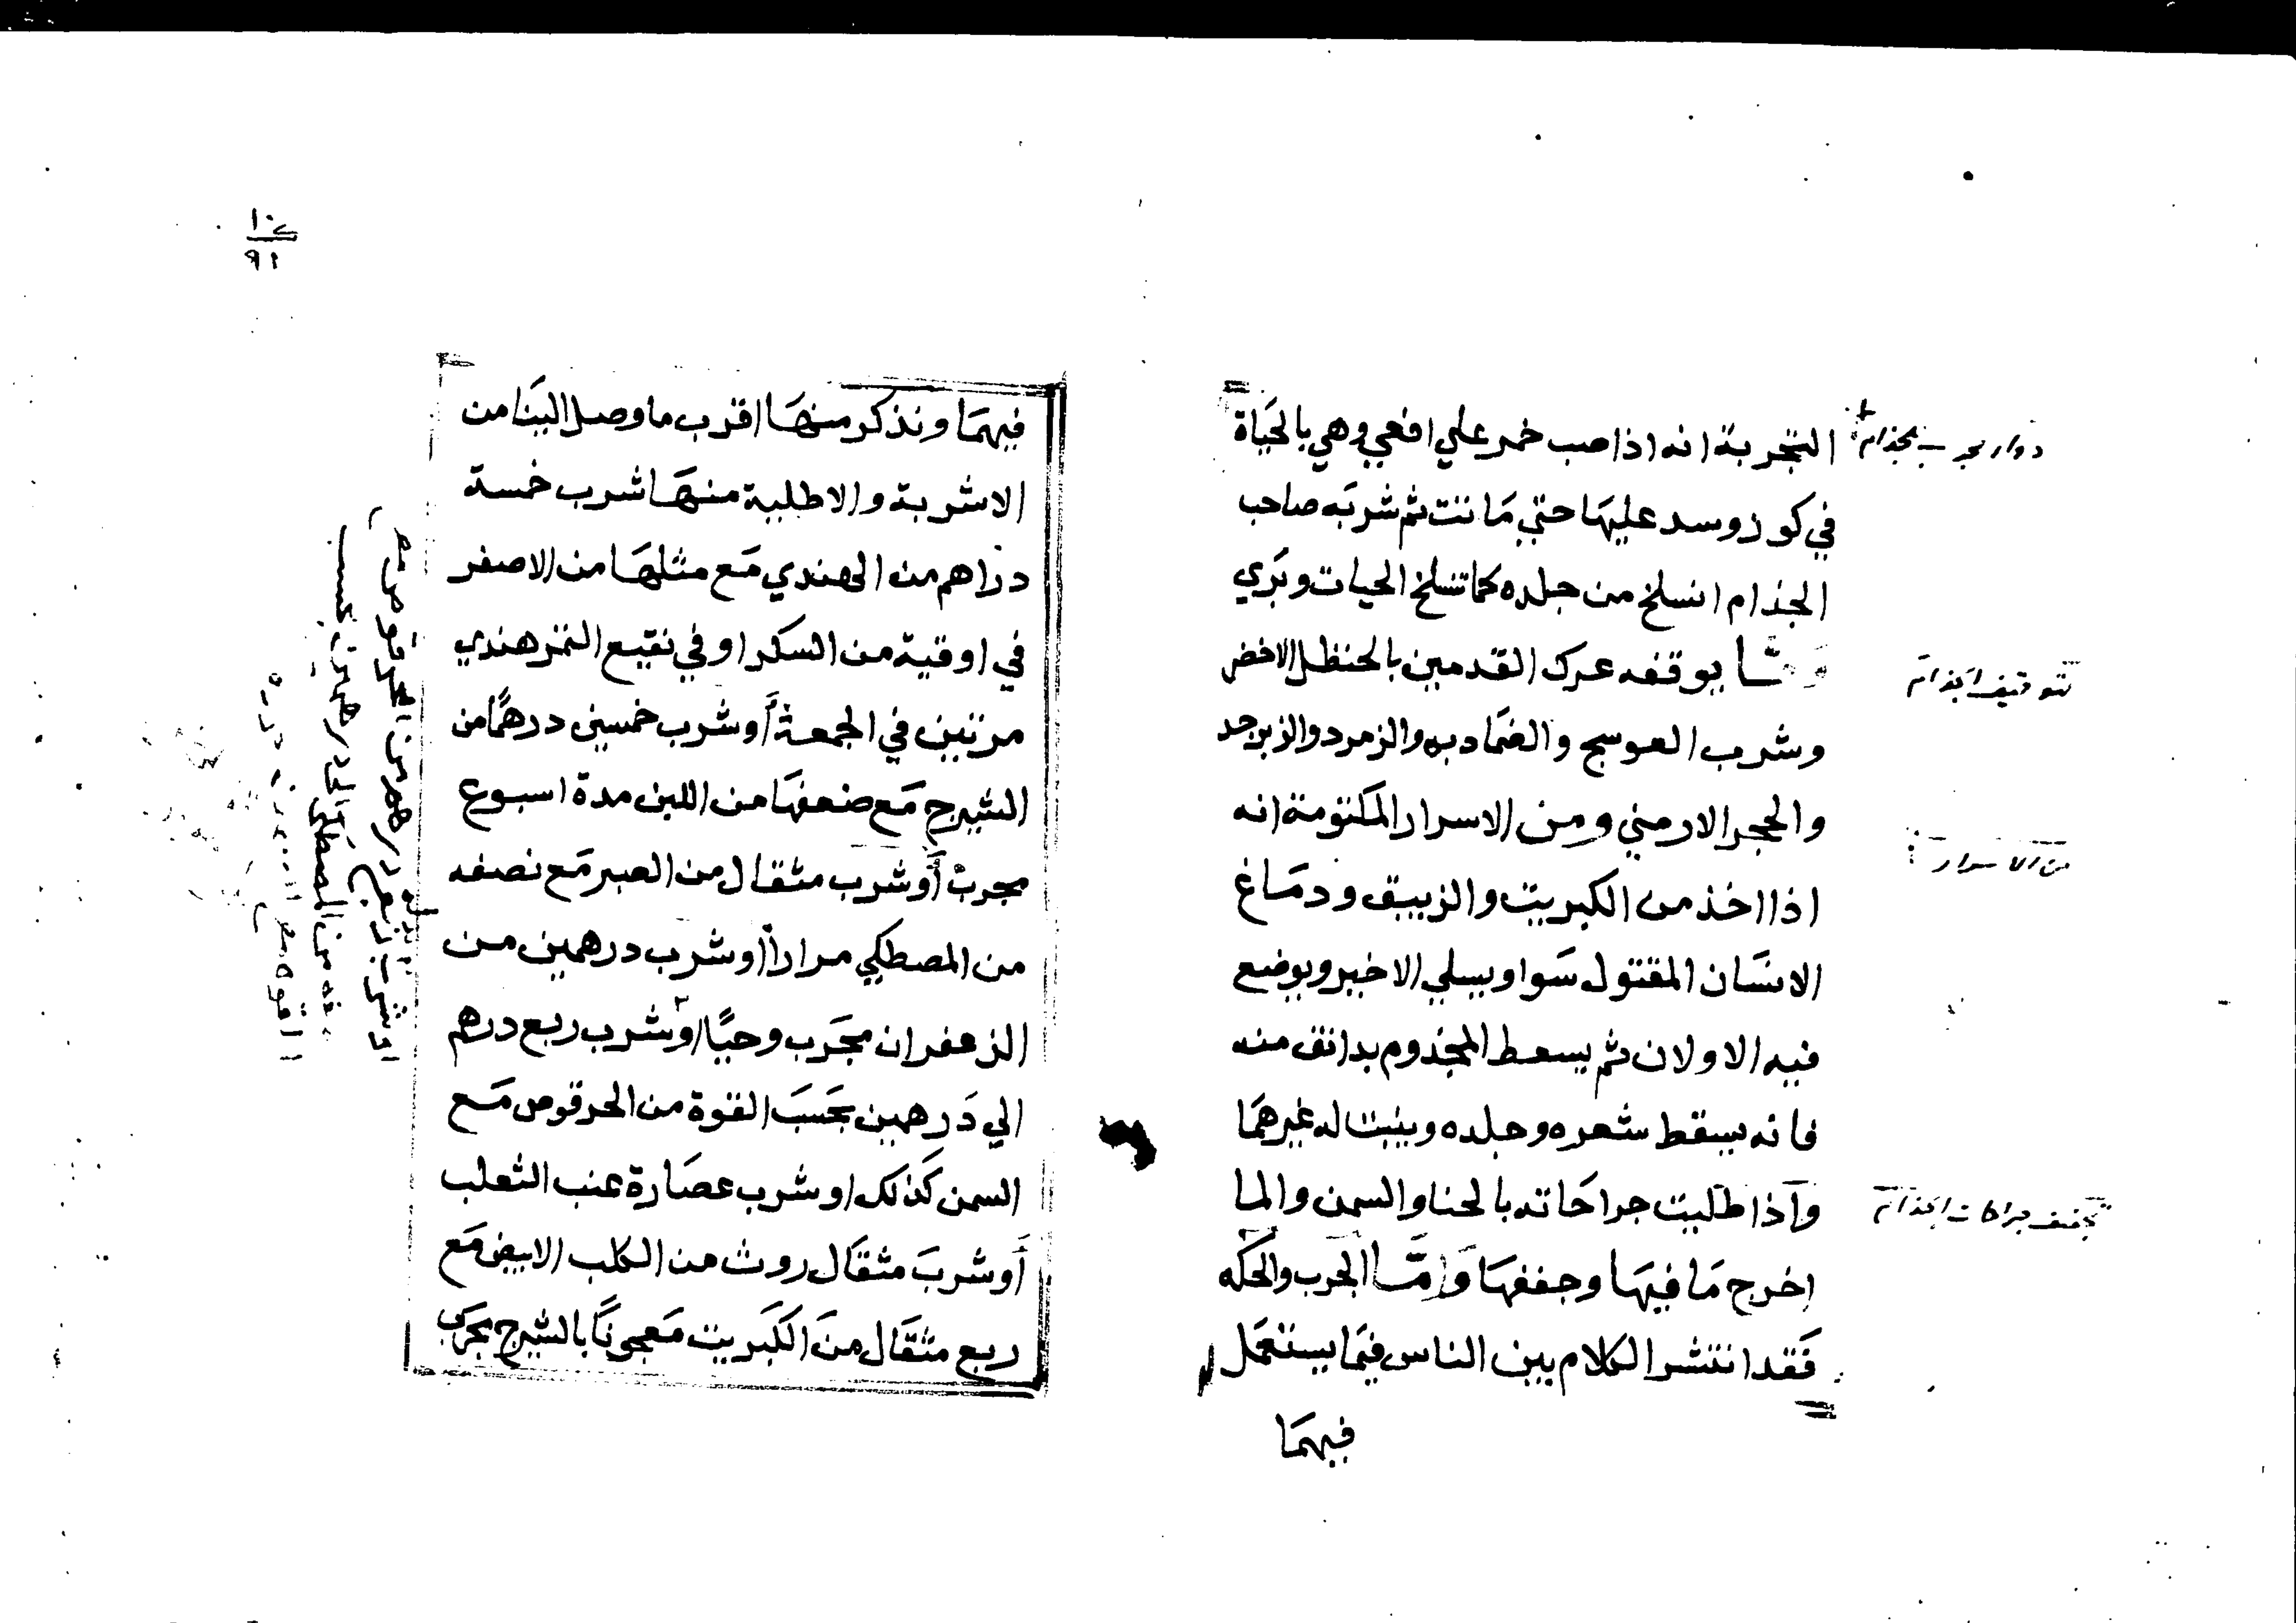 التجربة انه اذا صب خمر علي افعي وهي بالحياة
في كوز وسد عليها حتي ماتت ثم شربه صاحب
الجذام انسلخ من جلده كما تنسلخ الحيات وبري
يوقفه عرك القدمين بالحنظل الاخضر
وشرب العوسج والضماد به والزمرد والزبرجد
والحجر الارمني ومن الاسرار المكتومة انه
اذا اخذ من الكبريت والزيبق ودماغ
الانسان المقتول سوا ويسلي الاخير ويوضع
فيه الاولان ثم يسعط المجذوم بدانق منه
فانه يسقط شعره وجلده وينبت له غيرهما
واذا طليت جراحاته بالحنا والسمن والما
اخرج ما فيها وجففها واما الجرب والحكه
فقد انتشر الكلام بين الناس فيما يستعمل
فيهما
لتوقيف الجذام
من الاسرار
تجفيف جراحات الجذام
١٠٤
٩١
فيهما ونذكر منها اقرب ما وصل الينا من
الاشربة والاطلية منها شرب خمسة
دراهم من الهندي مع مثلها من الاصفر
في اوقية من السكر او في نقيع التمر هندي
مرتين في الجمعة أو شرب خمسين درهما من
الشيرج مع ضعفها من اللبن مدة اسبوع
مجرب أو شرب مثقال من الصبر مع نصفه
من المصطكي مرارا او شرب درهمين من
الزعفران مجرب وحيًا او شرب ربع درهم
الي درهمين بحسب القوة من الحرقوص مع
السمن كذلك او شرب عصارة عنب الثعلب
أو شرب مثقال روث من الكلب الابيض مع
ربع مثقال من الكبريت معجونًا بالشيرج مجرب